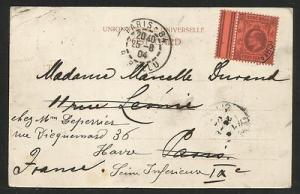 UNION UNIVERSELLE
PARIS
20 40
25-8
04
Madame Marcelle Durand
11 rue Léonie
chez Mme Deperrier
rue Dicquemard 36
Paris
Havre
France
Seine Inférieure